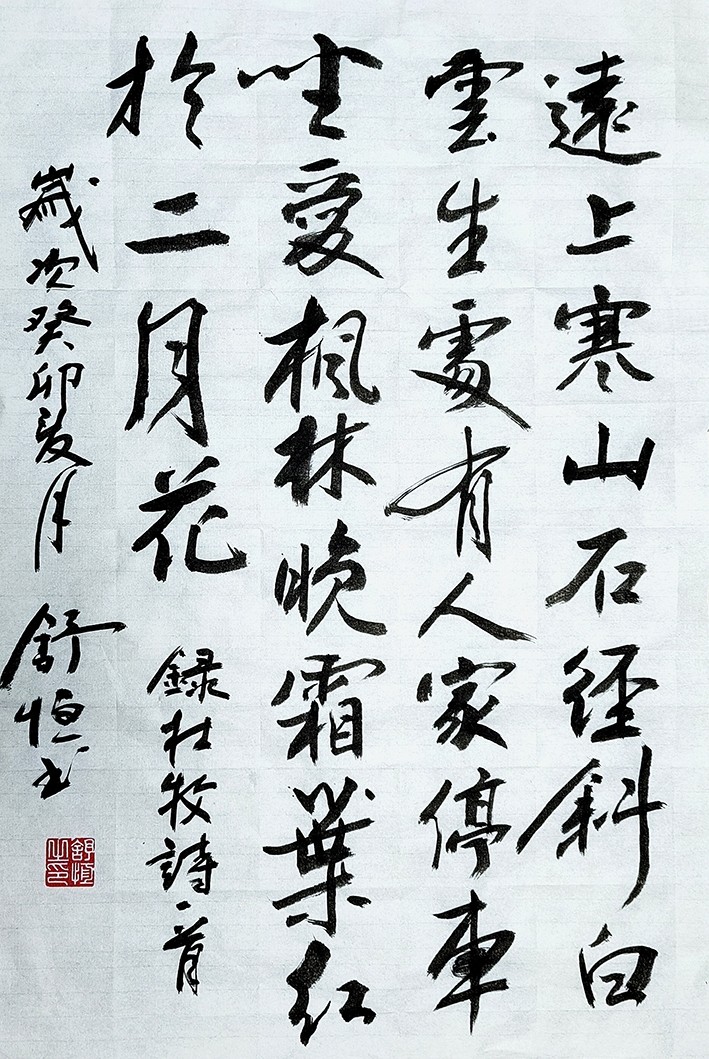 遠上寒山石徑斜白
雲生處有人家停車
坐愛楓林晚霜葉紅
於二月花
錄杜牧詩一首
歲次癸卯夏月
舒恒书
舒恒之印